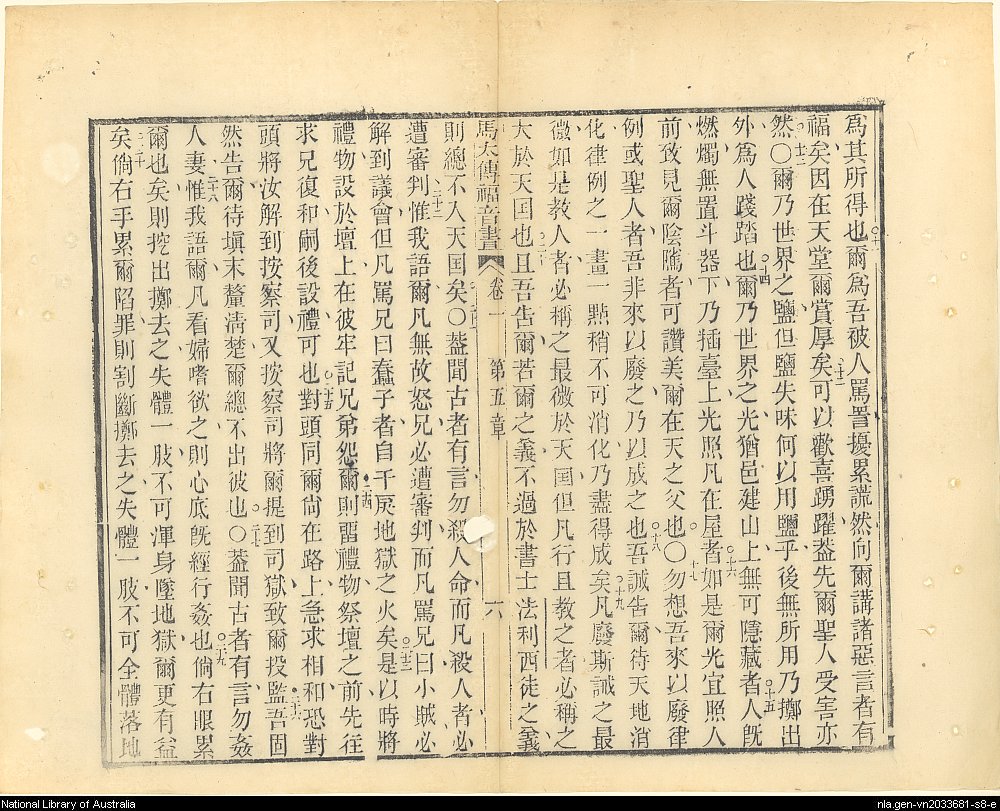 爲其所得也爾爲吾被人罵詈擾累謊然向爾講諸惡言者有
福矣因在天堂爾賞厚矣可以歡喜踴躍葢先爾聖人受害亦
然○爾乃世界之鹽但鹽失味何以用鹽乎後無所用乃擲出
外爲人踐踏也爾乃世界之光猶邑建山上無可隱藏者人旣
燃燭無置斗器下乃插臺上光照凡在屋者如是爾光宜照人
前致見爾陰騭者可讚美爾在天之父也○勿想吾來以廢律
例或聖人者吾非來以廢之乃以成之也吾誠告爾待天地消
化律例之一畫一點稍不可消化乃盡得成矣凡廢斯誡之最
微如是教人者必稱之最微於天囯但凡行且教之者必稱之
大於天囯也且吾告爾若爾之義不過於書士法利西徒之義
馬太傳福音書 卷一 第五章 六
則總不入天囯矣○葢聞古者有言勿殺人命而凡殺人者必
遭審判惟我語爾凡無故怒兄必遭審判而凡罵兄曰小賊必
解到議會但凡罵兄曰蠢子者自干戾地獄之火矣是以時將
禮物設於壇上在彼牢記兄弟怨爾則畱禮物祭壇之前先往
求兄復和嗣後設禮可也對頭同爾尙在路上急求相和恐對
頭將汝解到按察司又按察司將爾提到司獄致爾投監吾固
然告爾待塡末釐淸楚爾總不出彼也○葢聞古者有言勿姦
人妻惟我語爾凡看婦嗜欲之則心底旣經行姦也倘右眼累
爾也矣則挖出擲去之失體一肢不可渾身墜地獄爾更有益
矣倘右手累爾陷罪則割斷擲去之失體一肢不可全體落地
National Library of Australia
nla.gen-vn2033681-s8-e